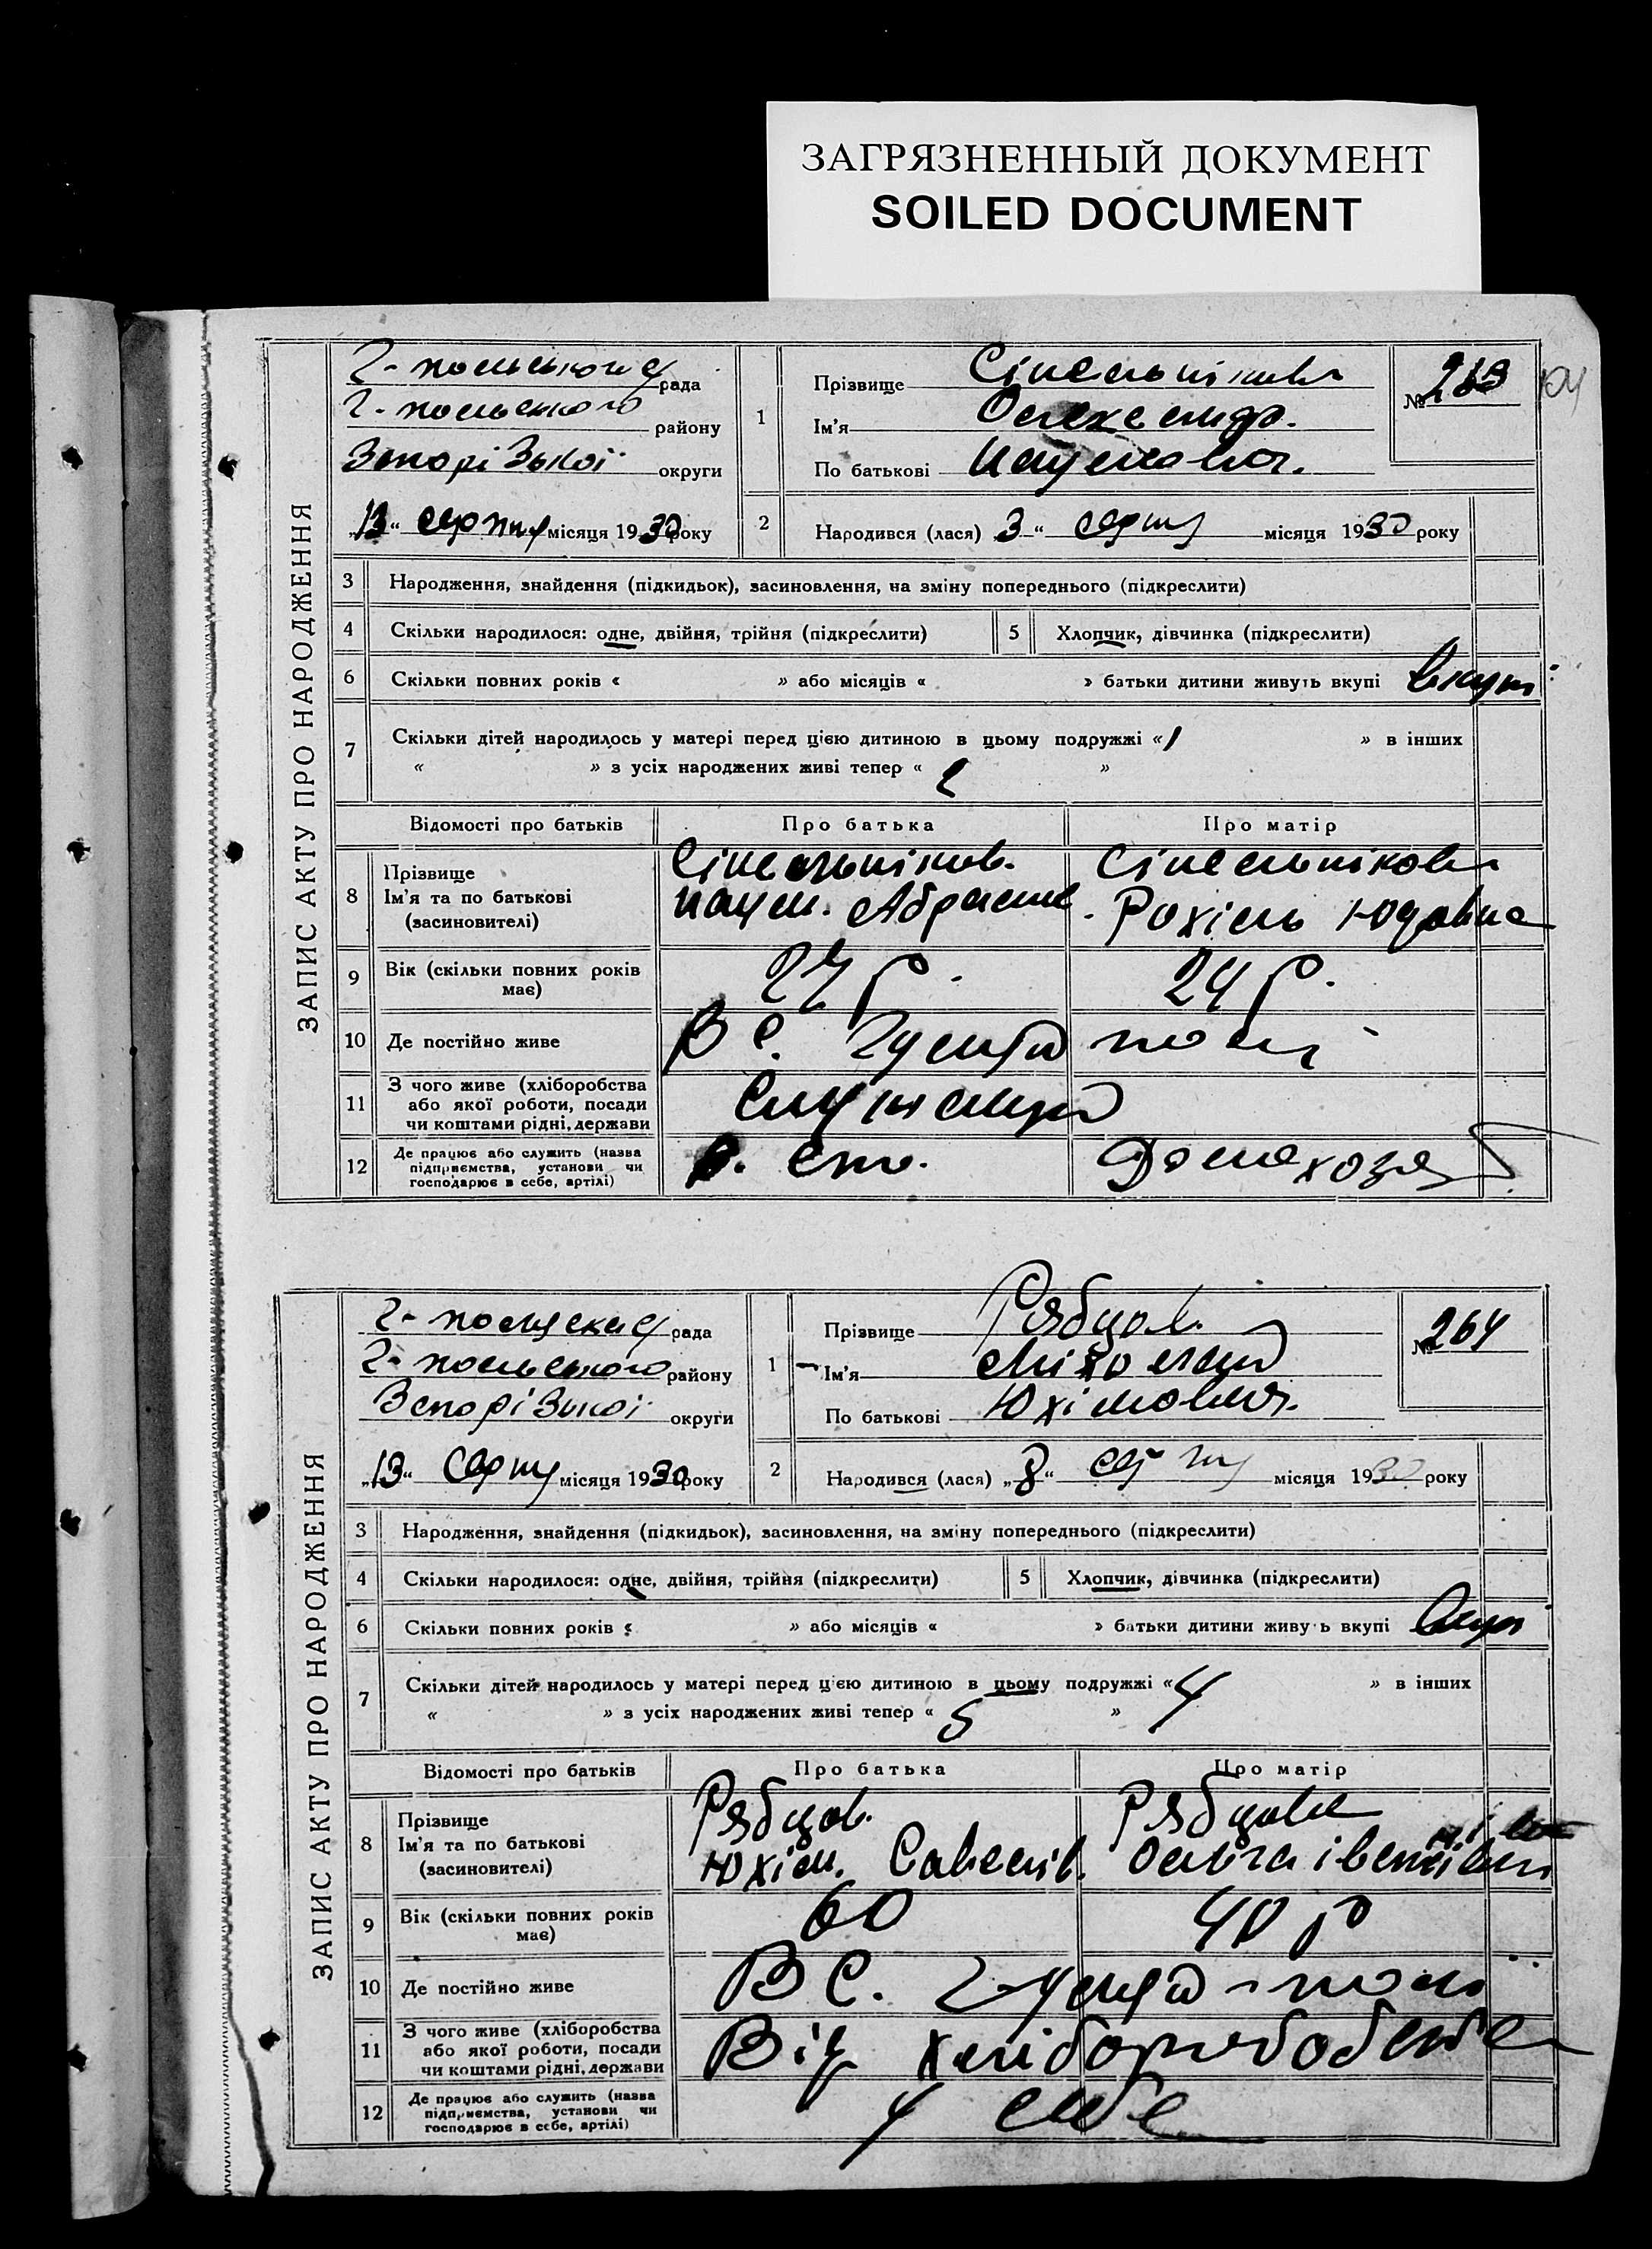 ЗАГРЯЗНЕННЫЙ ДОКУМЕНТ
SOILED DOCUMENT
ЗАПИС АКТУ ПРО НАРОДЖЕННЯ
рада
Г-польського району
Запорізької округи
„13“ серпня місяця 1930 року
1
Прізвище Сінельніков
Ім'я Олександр.
По батькові Наумович.
№ 263
104
2
Народився (лася) 3 “ серпня місяця 1930 року
3 Народження, знайдення (підкидьок), засиновлення, на зміну попереднього (підкреслити)
4 Скільки народилося: одне, двійня, трійня (підкреслити)
5 Хлопчик, дівчинка (підкреслити)
6 Скільки повних років « » або місяців « » батьки дитини живуть вкупі вкупі
7 Скільки дітей народилось у матері перед цією дитиною в цьому подружжі « 1 » в інших
« » з усіх народжених живі тепер « 2 »
Відомості про батьків
Про батька
Про матір
8 Прізвище
Ім'я та по батькові
(засиновителі)
Сінельніков.
Наум. Абрамов.
Сінельнікова
Рохіль Юдовна
9 Вік (скільки повних років
має)
27 р.
24 р.
10 Де постійно живе
В с. Гуляй полі
11 З чого живе (хліборобства
або якої роботи, посади
чи коштами рідні, держави
Служащий
12 Де працює або служить (назва
підприємства, установи чи
господарює в себе, артілі)
Домохоз
ЗАПИС АКТУ ПРО НАРОДЖЕННЯ
рада
Г-польського району
Запорізької округи
„13“ серпня місяця 1930 року
1
Прізвище Рябцов.
Ім'я Міколай
По батькові Юхімович.
№ 264
2
Народився (лася) „8“ серпня місяця 1930 року
3 Народження, знайдення (підкидьок), засиновлення, на зміну попереднього (підкреслити)
4 Скільки народилося: одне, двійня, трійня (підкреслити)
5 Хлопчик, дівчинка (підкреслити)
6 Скільки повних років « » або місяців « » батьки дитини живуть вкупі вкупі
7 Скільки дітей народилось у матері перед цією дитиною в цьому подружжі « 4 » в інших
« » з усіх народжених живі тепер « 5 »
Відомості про батьків
Про батька
Про матір
8 Прізвище
Ім'я та по батькові
(засиновителі)
Рябцов.
Юхім. Савелів.
Рябцова
Ольга
9 Вік (скільки повних років
має)
60
40 р
10 Де постійно живе
В с. Гуляй-полі
11 З чого живе (хліборобства
або якої роботи, посади
чи коштами рідні, держави
Від
12 Де працює або служить (назва
підприємства, установи чи
господарює в себе, артілі)
У себе